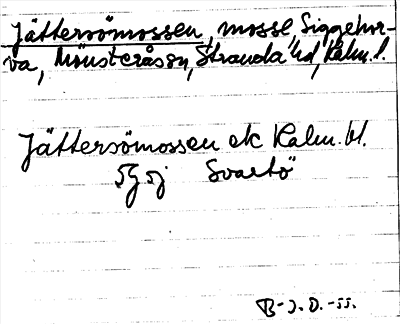 Jättersömossen, mosse, Siggehor-
va, Mönsterås sn, Stranda hd, Kalm. l.
Jättersömossen ek Kalm. bl.
5G 5j Svartö
B-J.O.-55.